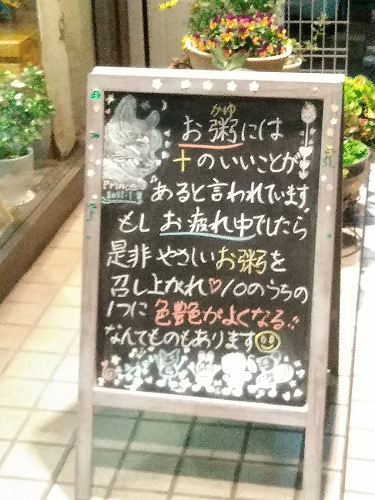 かゆ
お粥には
十のいいことが
あると言われています
もしお疲れ中でしたら
是非やさしいお粥を
召し上がれ♡10のうちの
1つに色艶がよくなる!!
なんてものもあります
Prince